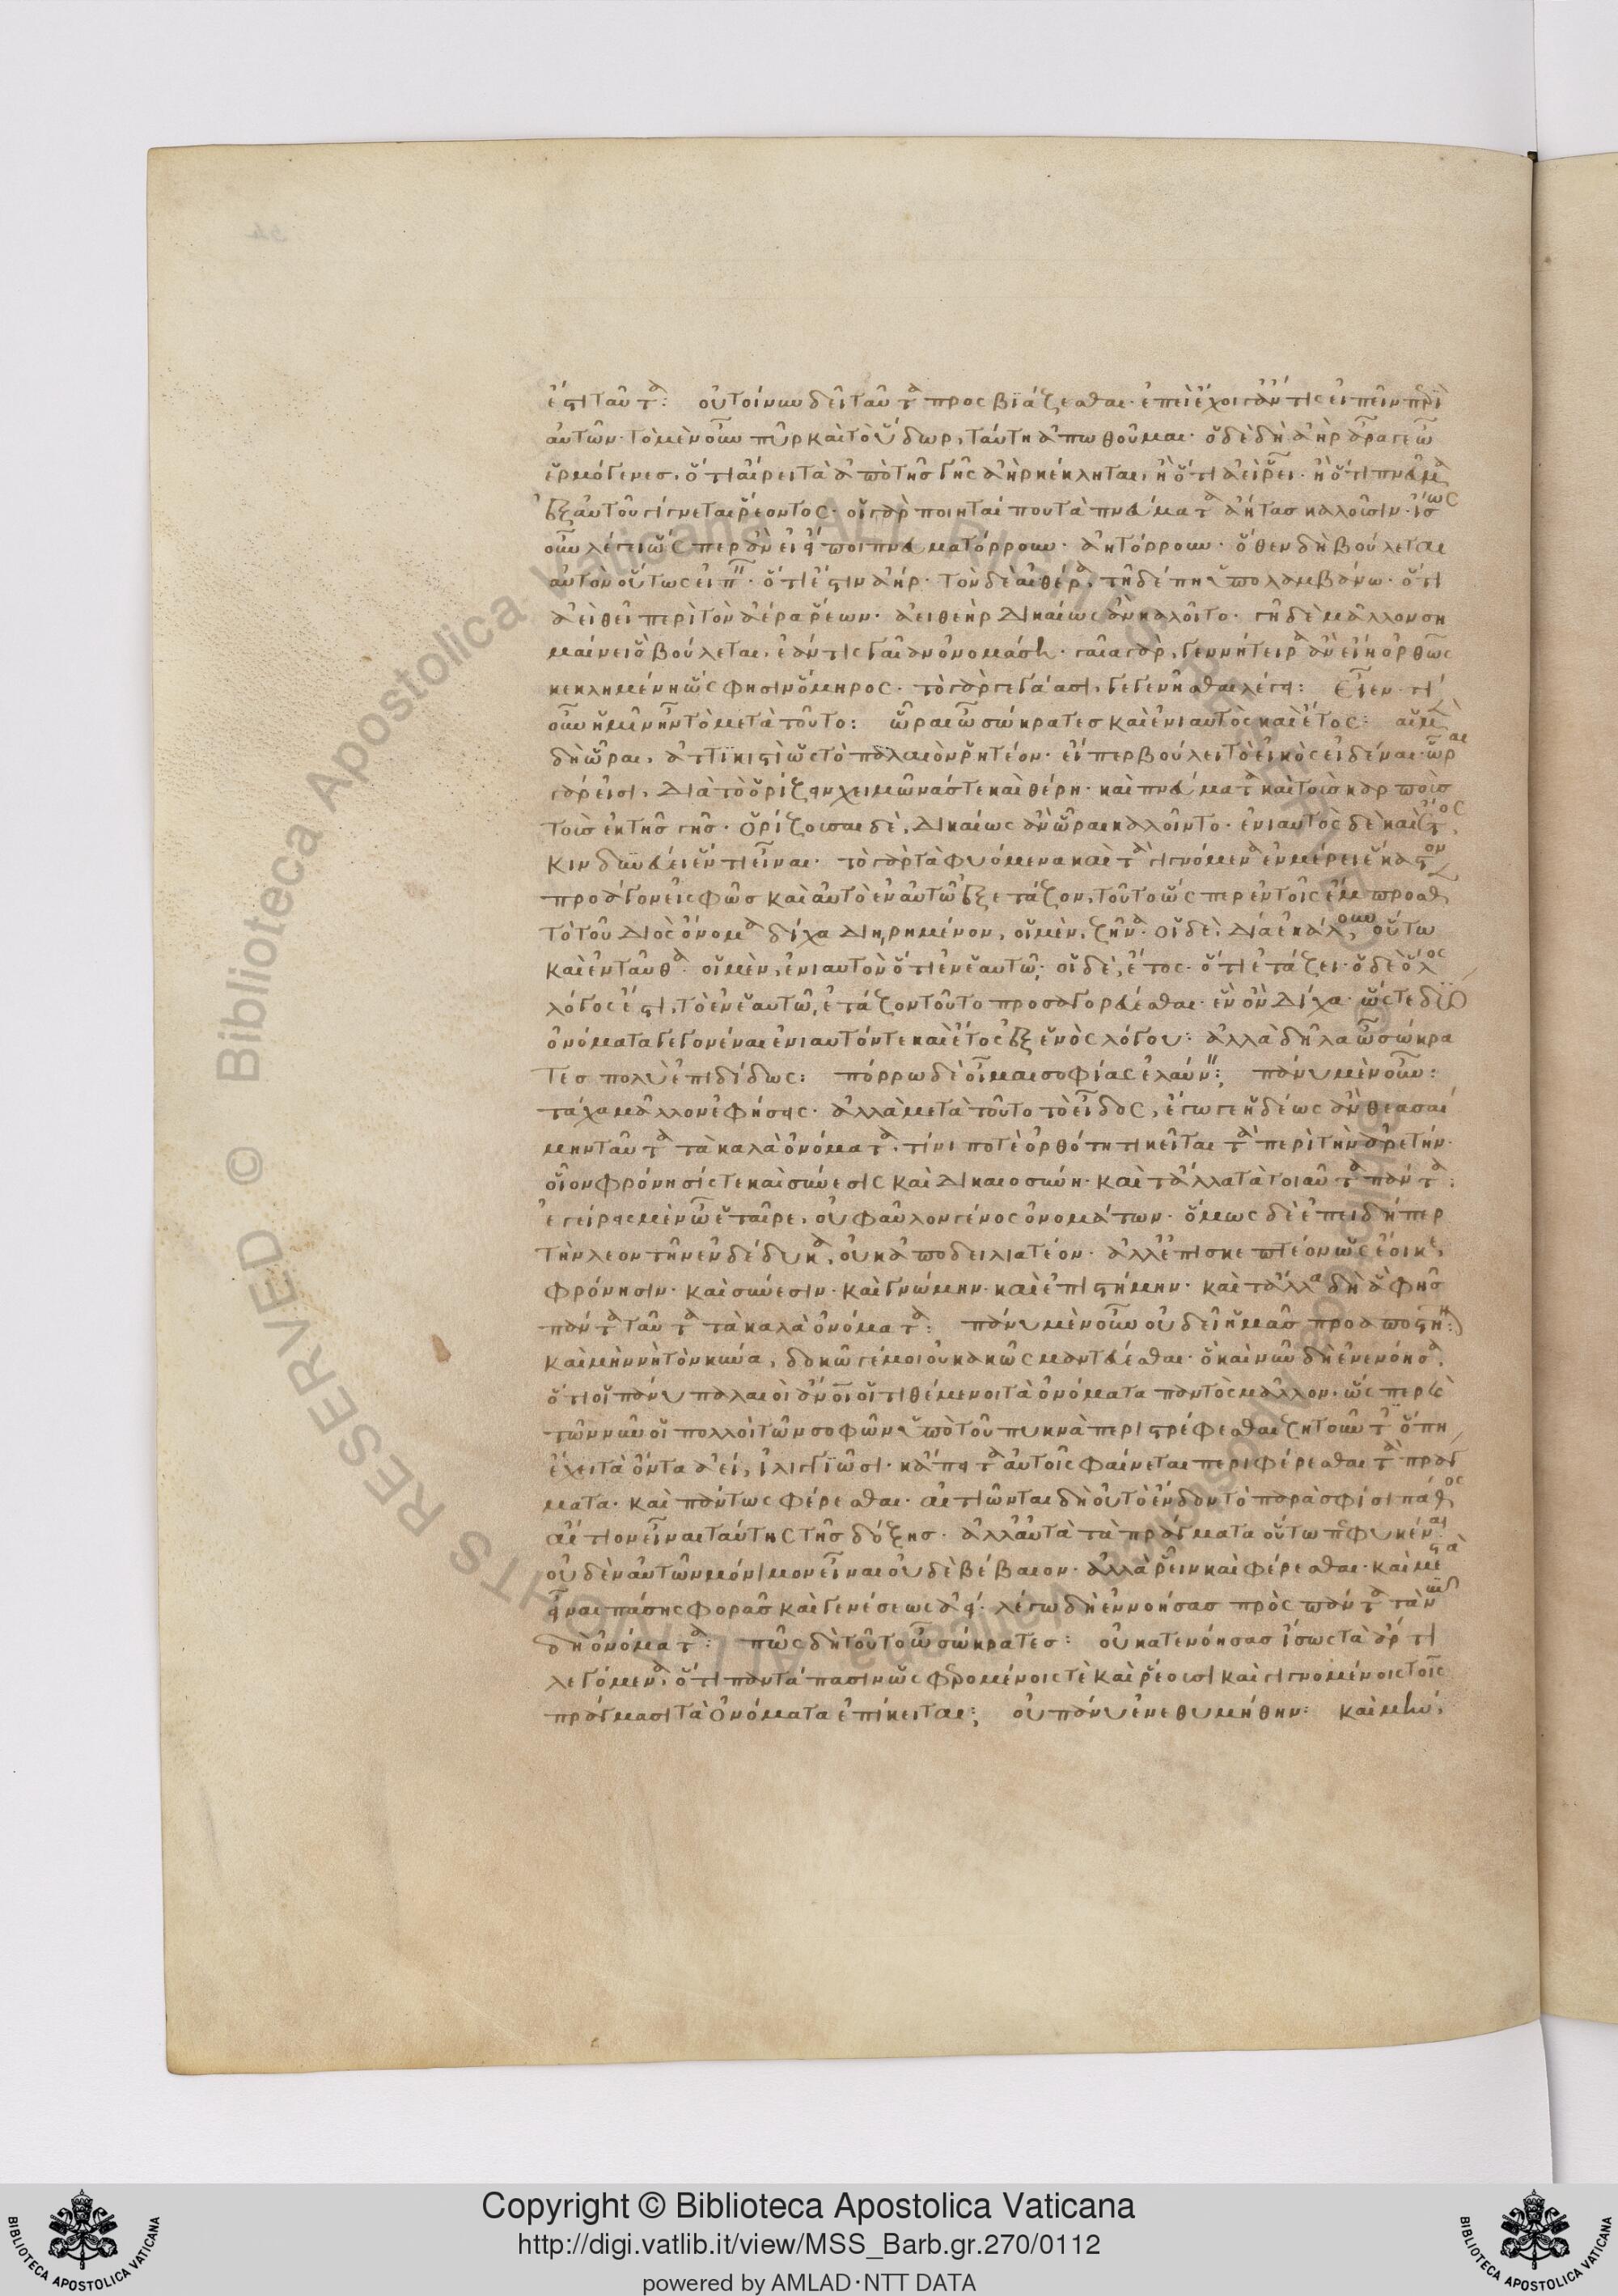 ἔστι ταῦτα: οὐ τοίνυν δεῖ ταῦτα προσβιάζεσθαι· ἐπεὶ ἔχοι γ' ἄν τις εἰπεῖν περὶ
αὐτῶν· τὸ μὲν οὖν πῦρ καὶ τὸ ὕδωρ, ταύτῃ ἀπωθοῦμαι· ὁ δὲ δὴ ἀὴρ ἆρά γε ὦ
ἑρμόγενες, ὅτι αἴρει τὰ ἀπὸ τῆς γῆς ἀὴρ κέκληται, ἢ ὅτι ἀεὶ ῥεῖ· ἢ ὅτι πνεῦμα
ἐξ αὐτοῦ γίγνεται ῥέοντος· οἱ γὰρ ποιηταί που τὰ πνεύματα ἀήτας καλοῦσιν· ἴσως
οὖν λέγει ὥσπερ ἂν εἰ εἴποι πνευματόρρουν· ἀητόρρουν· ὅθεν δὴ βούλεται
αὐτὸν οὕτως εἰπεῖν· ὅτι ἔστιν ἀήρ· τὸν δὲ αἰθέρα, τῇδέ πῃ ὑπολαμβάνω· ὅτι
ἀεὶ θεῖ περὶ τὸν ἀέρα ῥέων· ἀειθεὴρ δικαίως ἂν καλοῖτο· γῆ δὲ μᾶλλον ση
μαίνει ὃ βούλεται, ἐάν τις γαῖαν ὀνομάσῃ· γαῖα γὰρ, γεννήτειρα ἂν εἴη ὀρθῶς
κεκλημένη ὥς φησιν ὅμηρος· τὸ γὰρ γεγάασι, γεγενῆσθαι λέγει: εἶεν· τί
οὖν ἡμῖν ἦν τὸ μετὰ τοῦτο: ὧραι ὦ σώκρατες καὶ ἐνιαυτὸς καὶ ἔτος: αἱ μὲν
δὴ ὧραι, ἀττικιστὶ ὡς τὸ παλαιὸν ῥητέον· εἴπερ βούλει τὸ εἰκὸς εἰδέναι· ὧραι
γάρ εἰσι, διὰ τὸ ὁρίζειν χειμῶνάς τε καὶ θέρη· καὶ πνεύματα καὶ τοὺς καρποὺς
τοὺς ἐκ τῆς γῆς· ὁρίζουσαι δὲ, δικαίως ἂν ὧραι καλοῖντο· ἐνιαυτὸς δὲ καὶ ἔτος,
κινδυνεύει ἕν τι εἶναι· τὸ γὰρ τὰ φυόμενα καὶ τὰ γιγνόμενα ἐν μέρει ἕκαστον
προάγον εἰς φῶς καὶ αὐτὸ ἐν αὑτῷ ἐξετάζον, τοῦτο ὥσπερ ἐν τοῖς ἔμπροσθε
τὸ τοῦ διὸς ὄνομα δίχα διῃρημένον, οἱ μὲν, ζῆνα· οἱ δὲ, δία ἐκάλουν, οὕτω
καὶ ἐνταῦθα· οἱ μὲν, ἐνιαυτὸν ὅτι ἐν ἑαυτῷ, οἱ δὲ, ἔτος· ὅτι ἐτάζει· ὁ δὲ ὅλος
λόγος ἐστὶ, τὸ ἐν ἑαυτῷ, ἐτάζον τοῦτο προσαγορεύεσθαι· ἓν ὂν δίχα· ὥστε δύο
ὀνόματα γεγονέναι ἐνιαυτόν τε καὶ ἔτος ἐξ ἑνὸς λόγου: ἀλλὰ δῆλα ὦ σώκρα
τες πολὺ ἐπιδίδως: πόρρω δὲ οἶμαι σοφίας ἐλαύνειν: πάνυ μὲν οὖν:
τάχα μᾶλλον ἐφήσεις· ἀλλὰ μετὰ τοῦτο τὸ εἶδος, ἔγωγε ἡδέως ἂν θεασαί
μην ταῦτα τὰ καλὰ ὀνόματα, τίνι ποτὲ ὀρθότητι κεῖται τὰ περὶ τὴν ἀρετήν·
οἷον φρόνησίς τε καὶ σύνεσις καὶ δικαιοσύνη· καὶ τἄλλα τὰ τοιαῦτα πάντα:
ἐγείρεις μὲν ὦ ἑταῖρε, οὐ φαῦλον γένος ὀνομάτων· ὅμως δὲ ἐπειδήπερ
τὴν λεοντῆν ἐνδέδυκα, οὐκ ἀποδειλιατέον· ἀλλ' ἐπισκεπτέον ὡς ἔοικε,
φρόνησιν· καὶ σύνεσιν· καὶ γνώμην· καὶ ἐπιστήμην· καὶ τἄλλα δὴ ἃ φῂς
πάντα ταῦτα τὰ καλὰ ὀνόματα: πάνυ μὲν οὖν οὐ δεῖ ἡμᾶς προαποστῆναι:
καὶ μὴν νὴ τὸν κύνα, δοκῶ γέ μοι οὐ κακῶς μαντεύεσθαι· ὃ καὶ νῦν δὴ ἐνενόησα,
ὅτι οἱ πάνυ παλαιοὶ ἄνοι οἱ τιθέμενοι τὰ ὀνόματα παντὸς μᾶλλον· ὥσπερ καὶ
τῶν νῦν οἱ πολλοὶ τῶν σοφῶν ὑπὸ τοῦ πυκνὰ περιστρέφεσθαι ζητοῦντες ὅπῃ
ἔχει τὰ ὄντα ἀεί, ἰλιγγιῶσι· κἄπειτα αὐτοῖς φαίνεται περιφέρεσθαι τὰ πράγ
ματα· καὶ πάντως φέρεσθαι· αἰτιῶνται δὴ οὐ τὸ ἔνδον τὸ παρὰ σφίσι πάθος
αἴτιον εἶναι ταύτης τῆς δόξης· ἀλλ' αὐτὰ τὰ πράγματα οὕτω πεφυκέναι
οὐδὲν αὐτῶν μόνιμον εἶναι οὐδὲ βέβαιον· ἀλλὰ ῥεῖν καὶ φέρεσθαι· καὶ μεστὰ
εἶναι πάσης φορᾶς καὶ γενέσεως ἀεί· λέγω δὴ ἐννοήσας πρὸς πάντα τὰ νῦν
δὴ ὀνόματα: πῶς δὴ τοῦτο ὦ σώκρατες: οὐ κατενόησας ἴσως τὰ ἄρτι
λεγόμενα, ὅτι παντάπασιν ὡς φερομένοις τὲ καὶ ῥέουσι καὶ γιγνομένοις τοῖς
πράγμασι τὰ ὀνόματα ἐπίκειται: οὐ πάνυ ἐνεθυμήθην: καὶ μὴν,
Copyright © Biblioteca Apostolica Vaticana
http://digi.vatlib.it/view/MSS_Barb.gr.270/0112
powered by AMLAD·NTT DATA